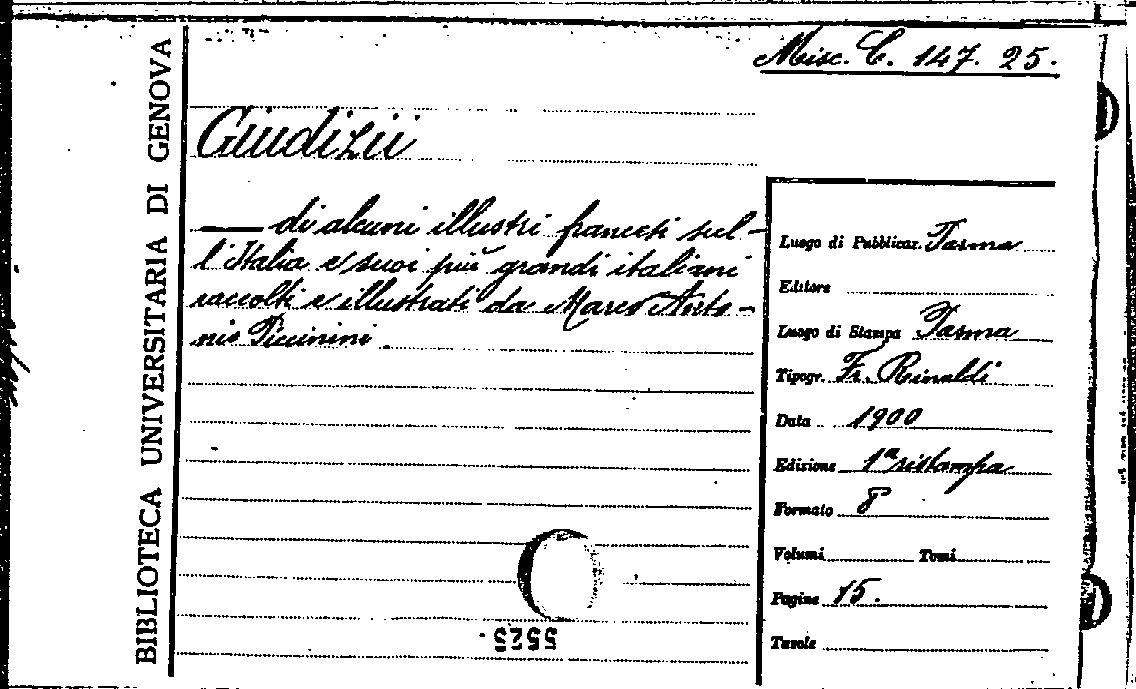 Misc. C. 147. 25.
BIBLIOTECA UNIVERSITARIA DI GENOVA
Giudizii
— di alcuni illustri francesi sul-
l'Italia e suoi più grandi italiani
raccolti e illustrati da Marco Anto-
nio Piccinini.
Luogo di Pubblicaz. Parma
Editore
Luogo di Stampa Parma
Tipogr. Fr. Rinaldi
Data 1900
Edizione 1ª ristampa
Formato 8°
Volumi Tomi
Pagine 15.
Tavole
5525.